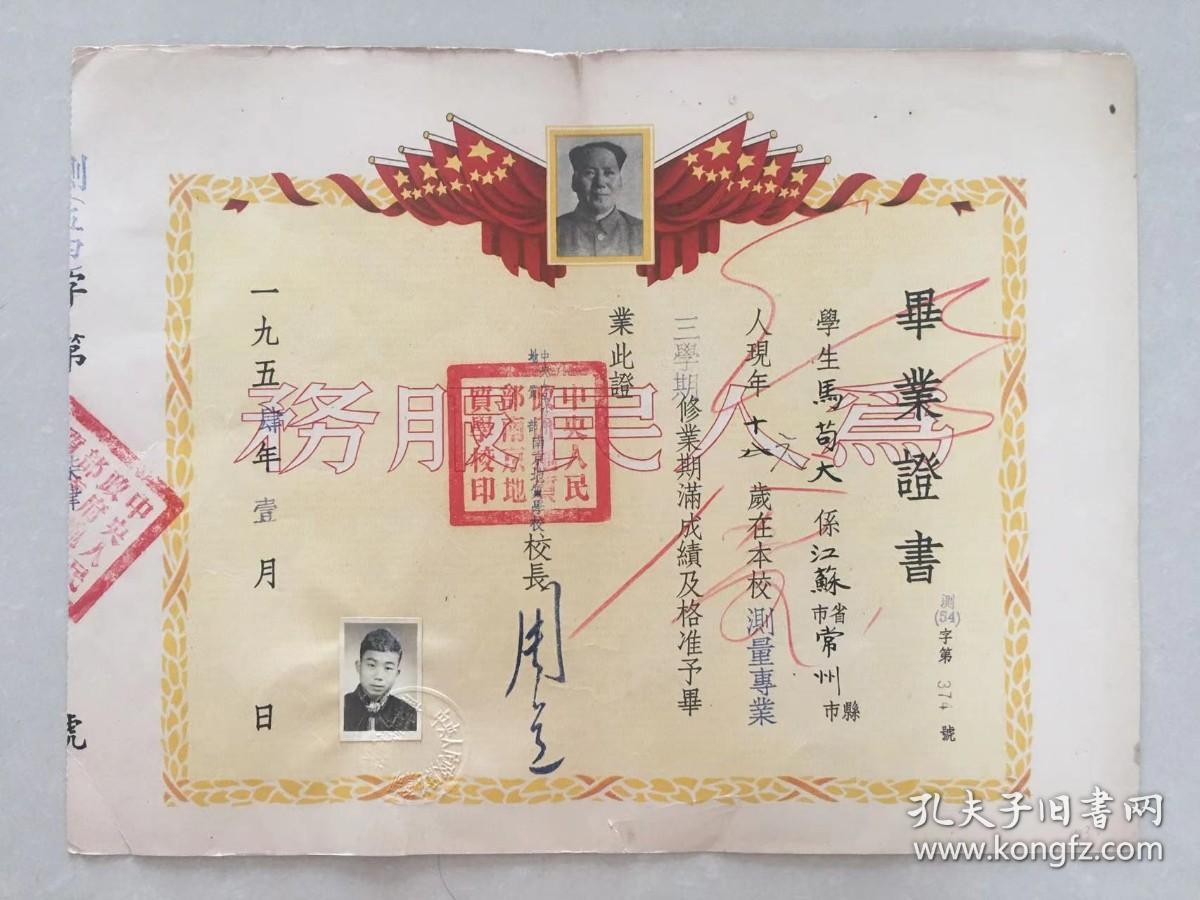 畢業證書
測(54)字第374號
學生馬苟大係江蘇省市常州縣市
人現年十八歲在本校測量專業
三學期修業期滿成績及格准予畢
業此證
爲人民服務
中央人民
地質
部南京地質學校校長
周
中央人民
部南京地
質學校印
一九五肆年壹月 日
字第
號
孔夫子旧书网
www.kongfz.com